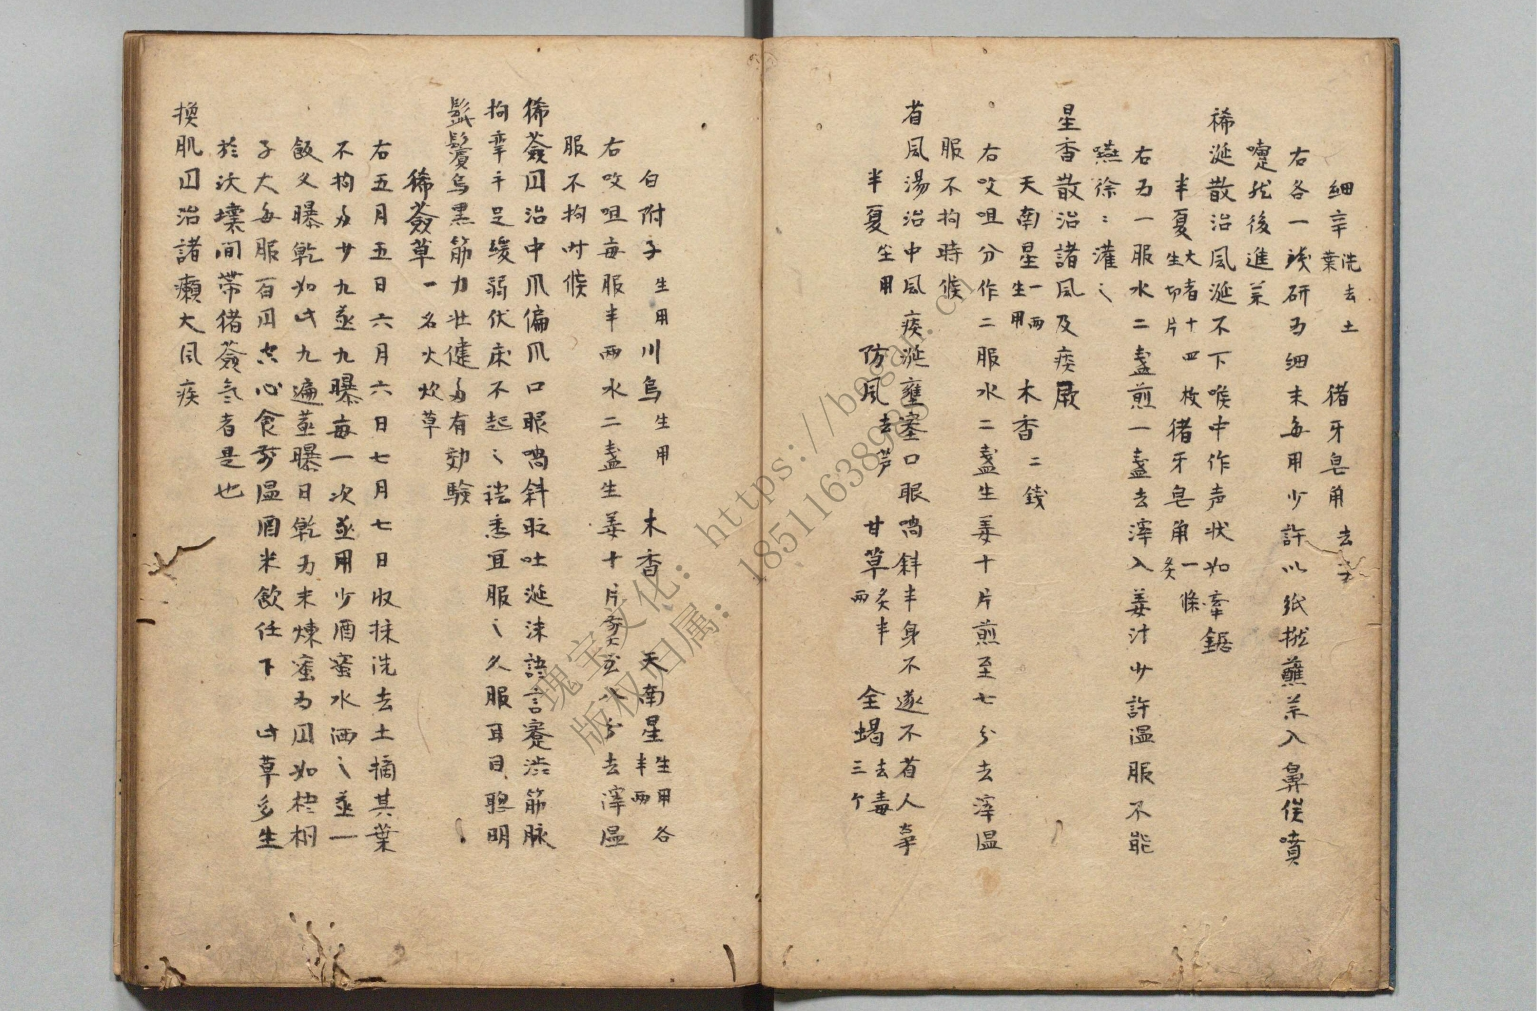 細辛洗去土葉 猪牙皂角去
右各一錢研为細末每用少許以紙撚蘸药入鼻俟噴
嚏然後進药
稀涎散治風涎不下喉中作声状如牽鋸
半夏大者十四枚生切片 猪牙皂角一條炙
右为一服水二盞煎一盞去滓入姜汁少許温服不能
嚥徐〻灌之
星香散治諸風及痰厥
天南星一两生用 木香二錢
右㕮咀分作二服水二盞生姜十片煎至七分去滓温
服不拘時候
省風湯治中風痰涎壅塞口眼喎斜半身不遂不省人事
半夏生用 防風去芦 甘草炙半两 全蝎去毒三个
白附子生用 川烏生用 木香 天南星生用各半两
右㕮咀每服半两水二盞生姜十片煎至八分去滓温
服不拘时候
豨薟囬治中风偏风口眼喎斜 吐涎沫語言蹇涩筋脉
拘挛手足缓弱伏床不起 悉宜服之久服耳目聰明
髭鬢烏黑筋力壮健 有効験
豨薟草 一名火炊草
右五月五日六月六日七月七日收採洗去土摘其葉
不拘多少九蒸九曝每一次蒸用少酒蜜水洒之蒸一
飯久曝乾如此九遍蒸曝日乾为末煉蜜为囬如梧桐
子大每服百囬空心食前温酒米飲任下 此草多生
於沃壤間带猪薟氣者是也
換肌囬治諸癩大风疾
瑰宝文化：https://bogan.cn
版权归属：18511638983